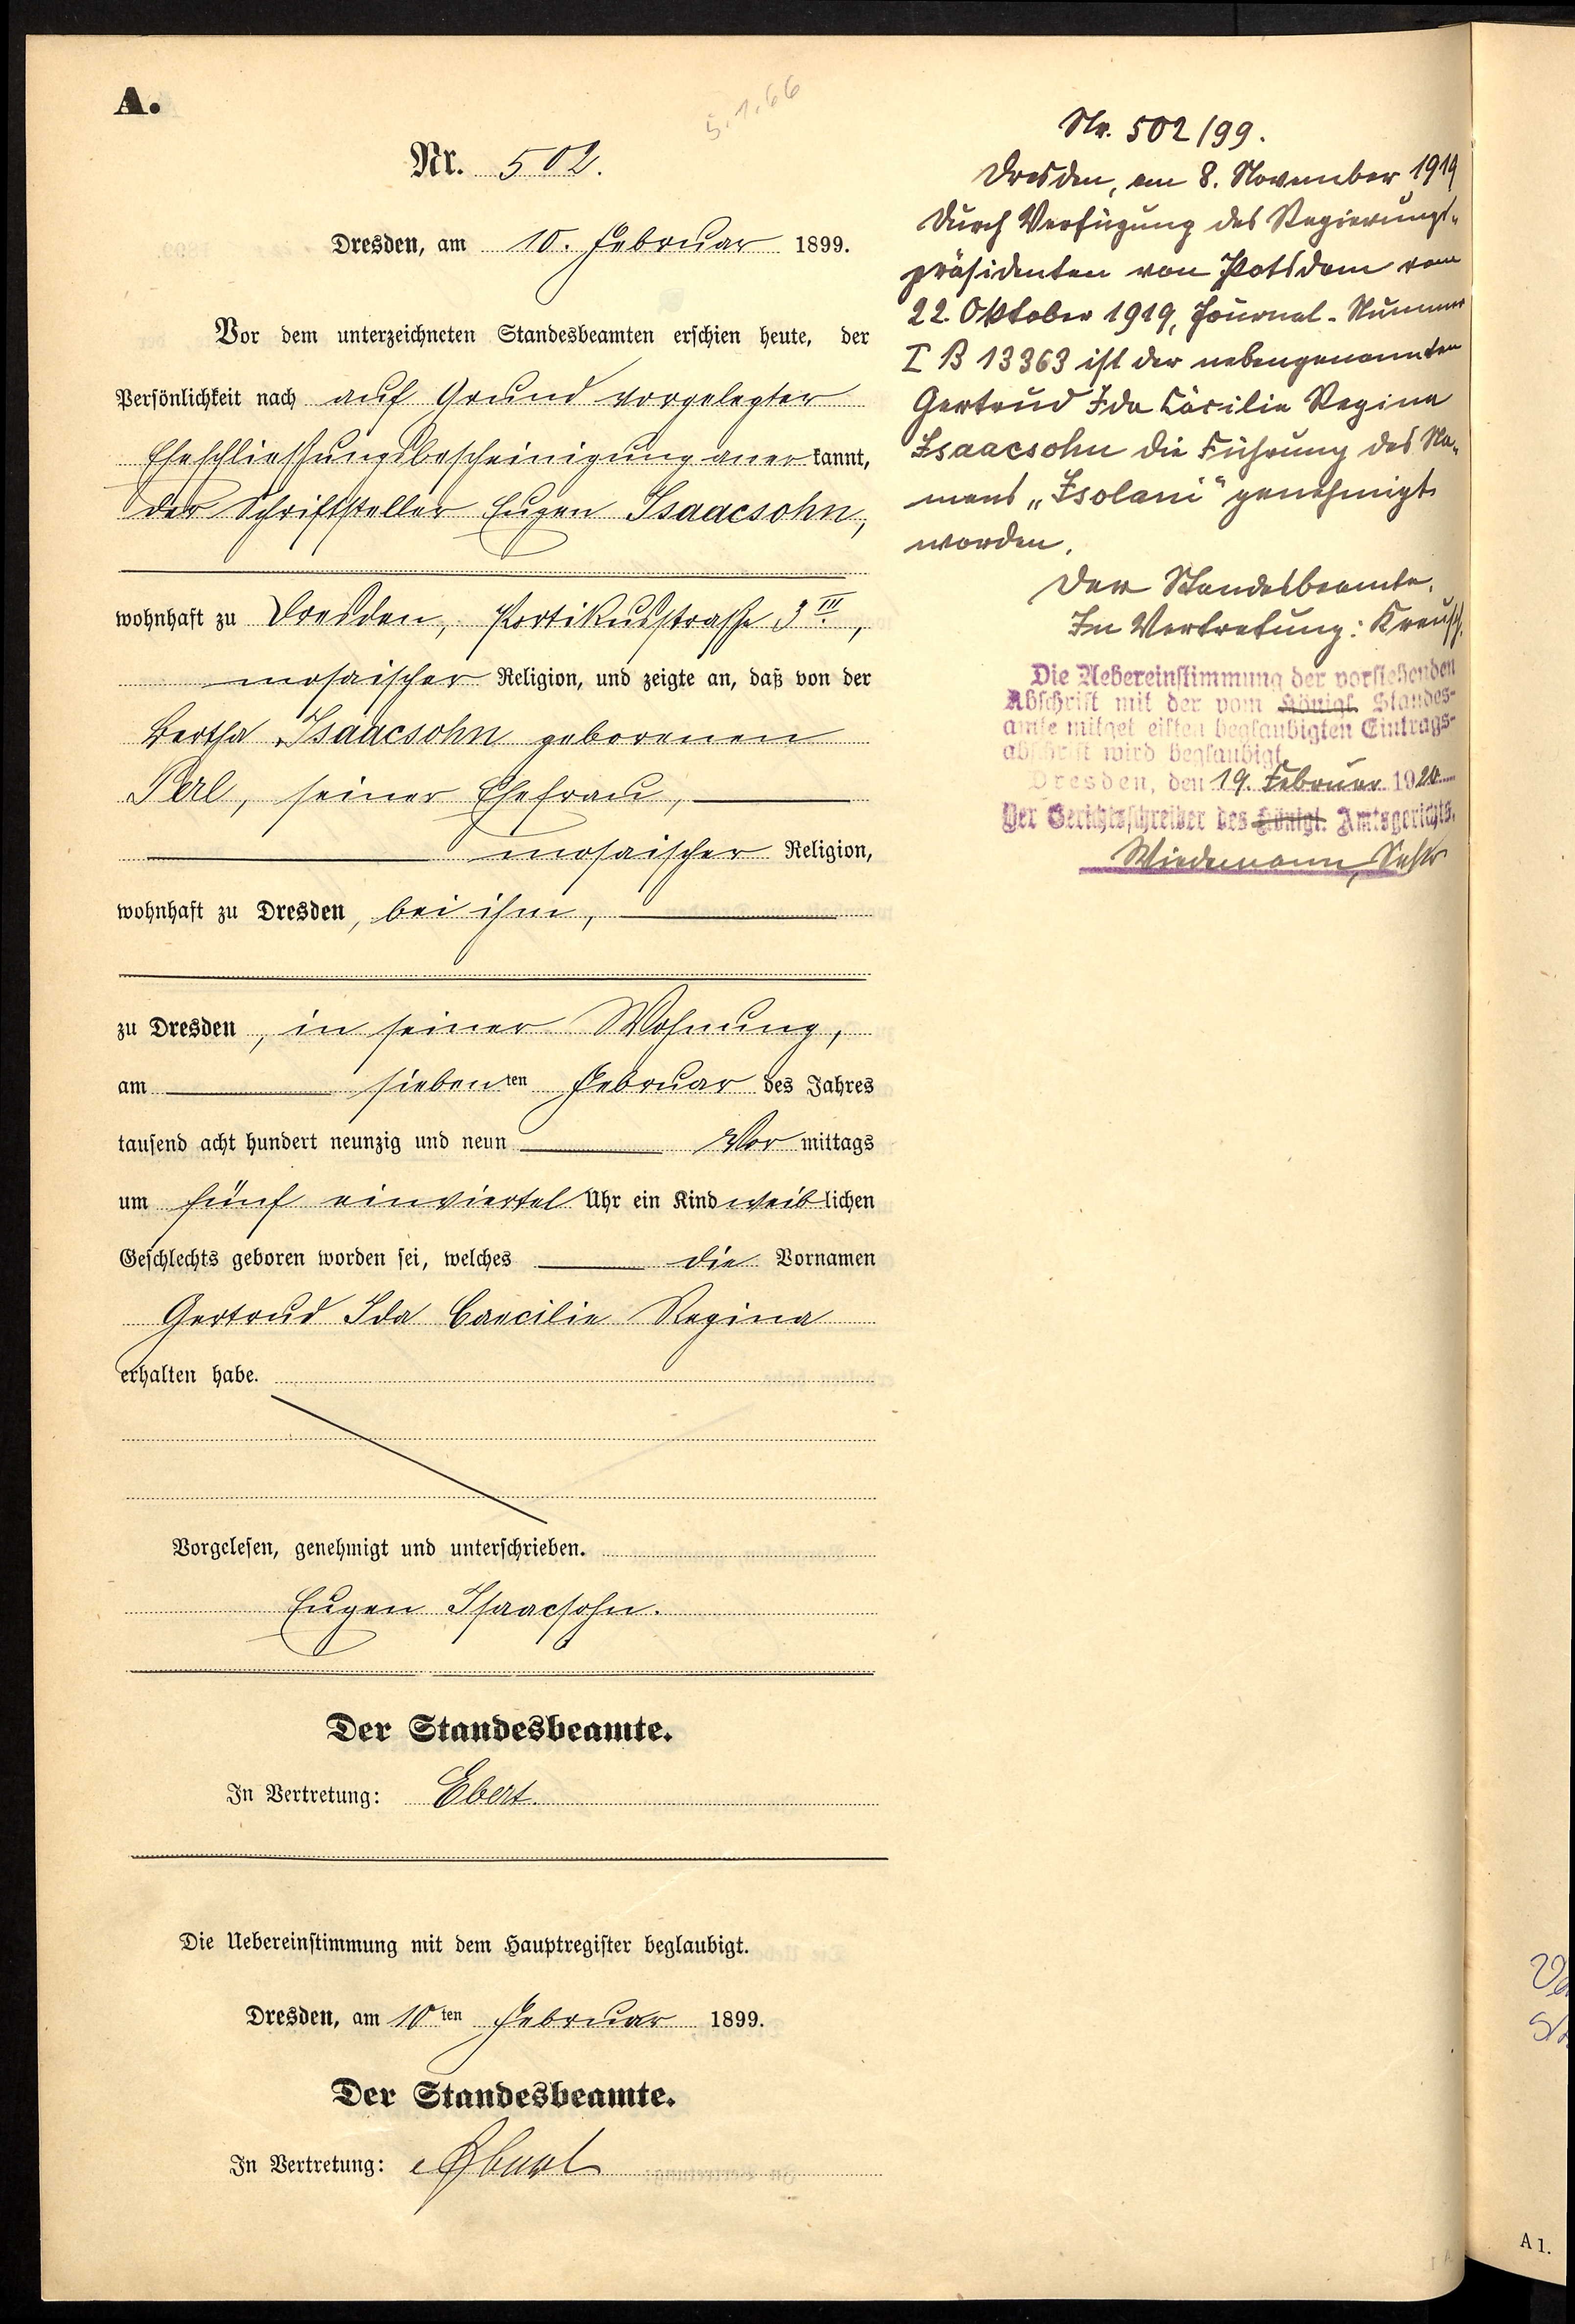 A.
5.1.66
Nr. 502.
Dresden, am 10. Februar 1899.
Vor dem unterzeichneten Standesbeamten erschien heute, der
Persönlichkeit nach auf Grund vorgelegter
Eheschließungsbescheinigung anerkannt,
der Schriftsteller Eugen Isaacsohn,
wohnhaft zu Dresden, Portikusstrasse 3 III.,
mosaischer Religion, und zeigte an, daß von der
Bertha Isaacsohn geborenen
Perl, seiner Ehefrau,
mosaischer Religion,
wohnhaft zu Dresden, bei ihm,
zu Dresden, in seiner Wohnung,
am siebenten Februar des Jahres
tausend acht hundert neunzig und neun Vormittags
um fünf einviertel Uhr ein Kind weiblichen
Geschlechts geboren worden sei, welches die Vornamen
Gertrud Ida Caecilie Regina
erhalten habe.
Vorgelesen, genehmigt und unterschrieben.
Eugen Isaacsohn.
Der Standesbeamte.
In Vertretung: Ebert.
Die Uebereinstimmung mit dem Hauptregister beglaubigt.
Dresden, am 10ten Februar 1899.
Der Standesbeamte.
In Vertretung: Ebert
Nr. 502/99.
Dresden, am 8. November 1919
Durch Verfügung des Regierungs-
präsidenten von Potsdam vom
22. Oktober 1919, Journal-Nummer
I B 13363 ist der nebengenannten
Gertrud Ida Cäcilie Regina
Isaacsohn die Führung des Na-
mens „Isolani" genehmigt
worden.
Der Standesbeamte.
In Vertretung: Kreusch.
Die Uebereinstimmung der vorstehenden
Abschrift mit der vom Königl. Standes-
amte mitgeteilten beglaubigten Eintrags-
abschrift wird beglaubigt.
Dresden, den 19. Februar 1920
Der Gerichtsschreiber des Königl. Amtsgerichts.
Wiedemann, Sekr
A 1.